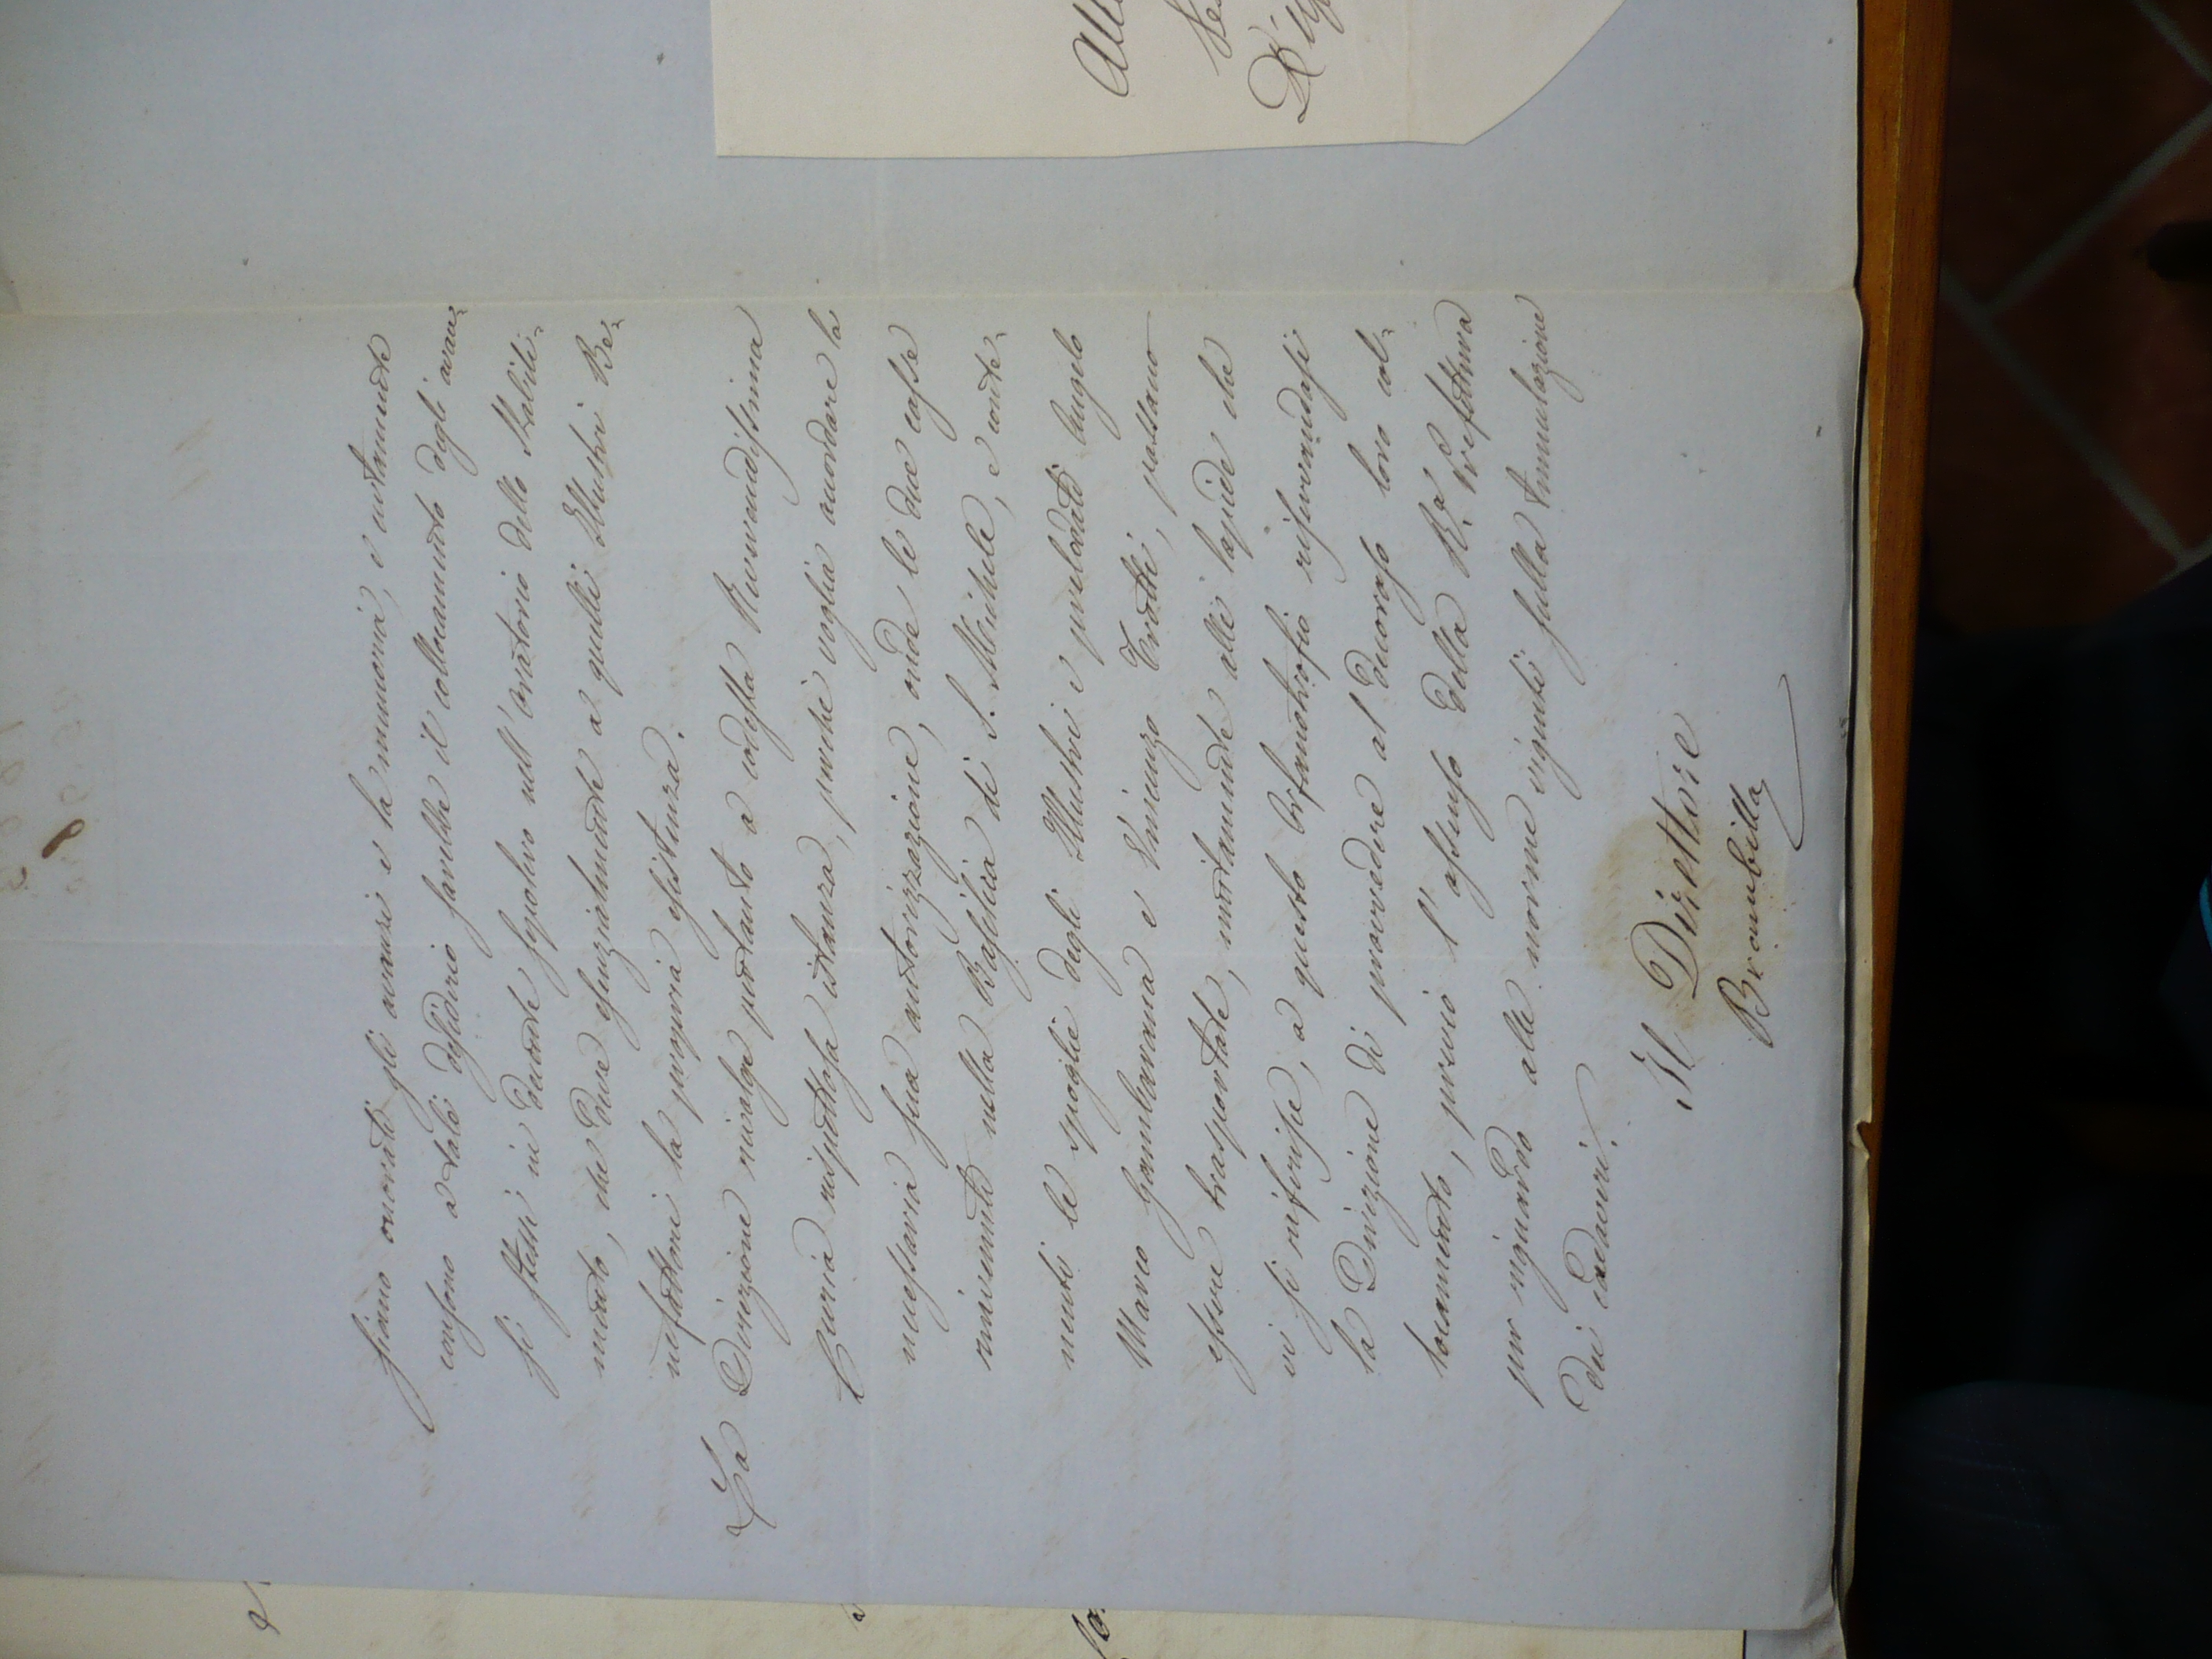 siano onorati gli avanzi e la memoria, e certamente
consono a tale desiderio sarebbe il collocamento degli avan=
si stessi in decente sepolcro nell'oratorio dello Stabili=
mento, che deve essenzialmente a quelli Illustri Be=
nefattori la propria esistenza.
La Direzione rivolge pertanto a codesta Reverendissima
Curia rispettosa istanza, perché voglia accordare la
necessaria sua autorizzazione, onde le due casse
rinvenute nella Basilica di S. Michele, e conte=
nenti le spoglie degli Illustri e prelodati Angelo
Marco Gambarana e Vincenzo Trotti, possano
essere trasportate, unitamente alle lapide che
vi si riferisce, a questo Orfanotrofio riservandosi
la Direzione di provvedere al decoroso loro col=
locamento, previo l'assenso della R.a Prefettura
per riguardo alle norme vigenti sulla tumulazione
dei cadaveri.
Il Direttore
Brambilla
All
D